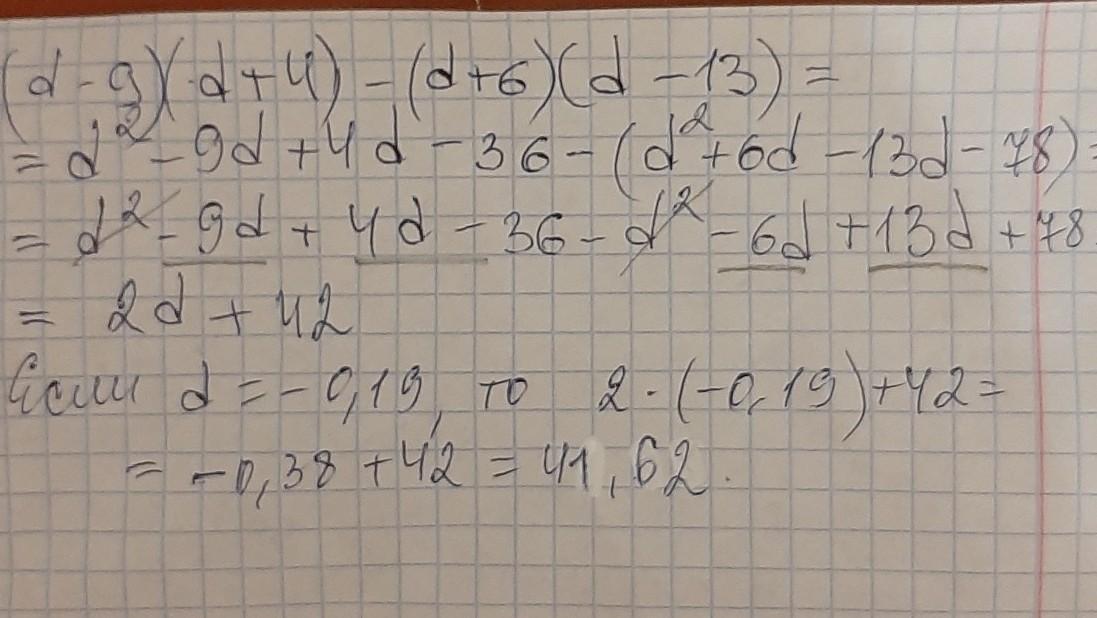 (d - 9)(d + 4) - (d + 6)(d - 13) =
= d² - 9d + 4d - 36 - (d² + 6d - 13d - 78) =
= d² - 9d + 4d - 36 - d² - 6d + 13d + 78
= 2d + 42
Если d = - 0,19, то 2 · (-0,19) + 42 =
= -0,38 + 42 = 41,62.